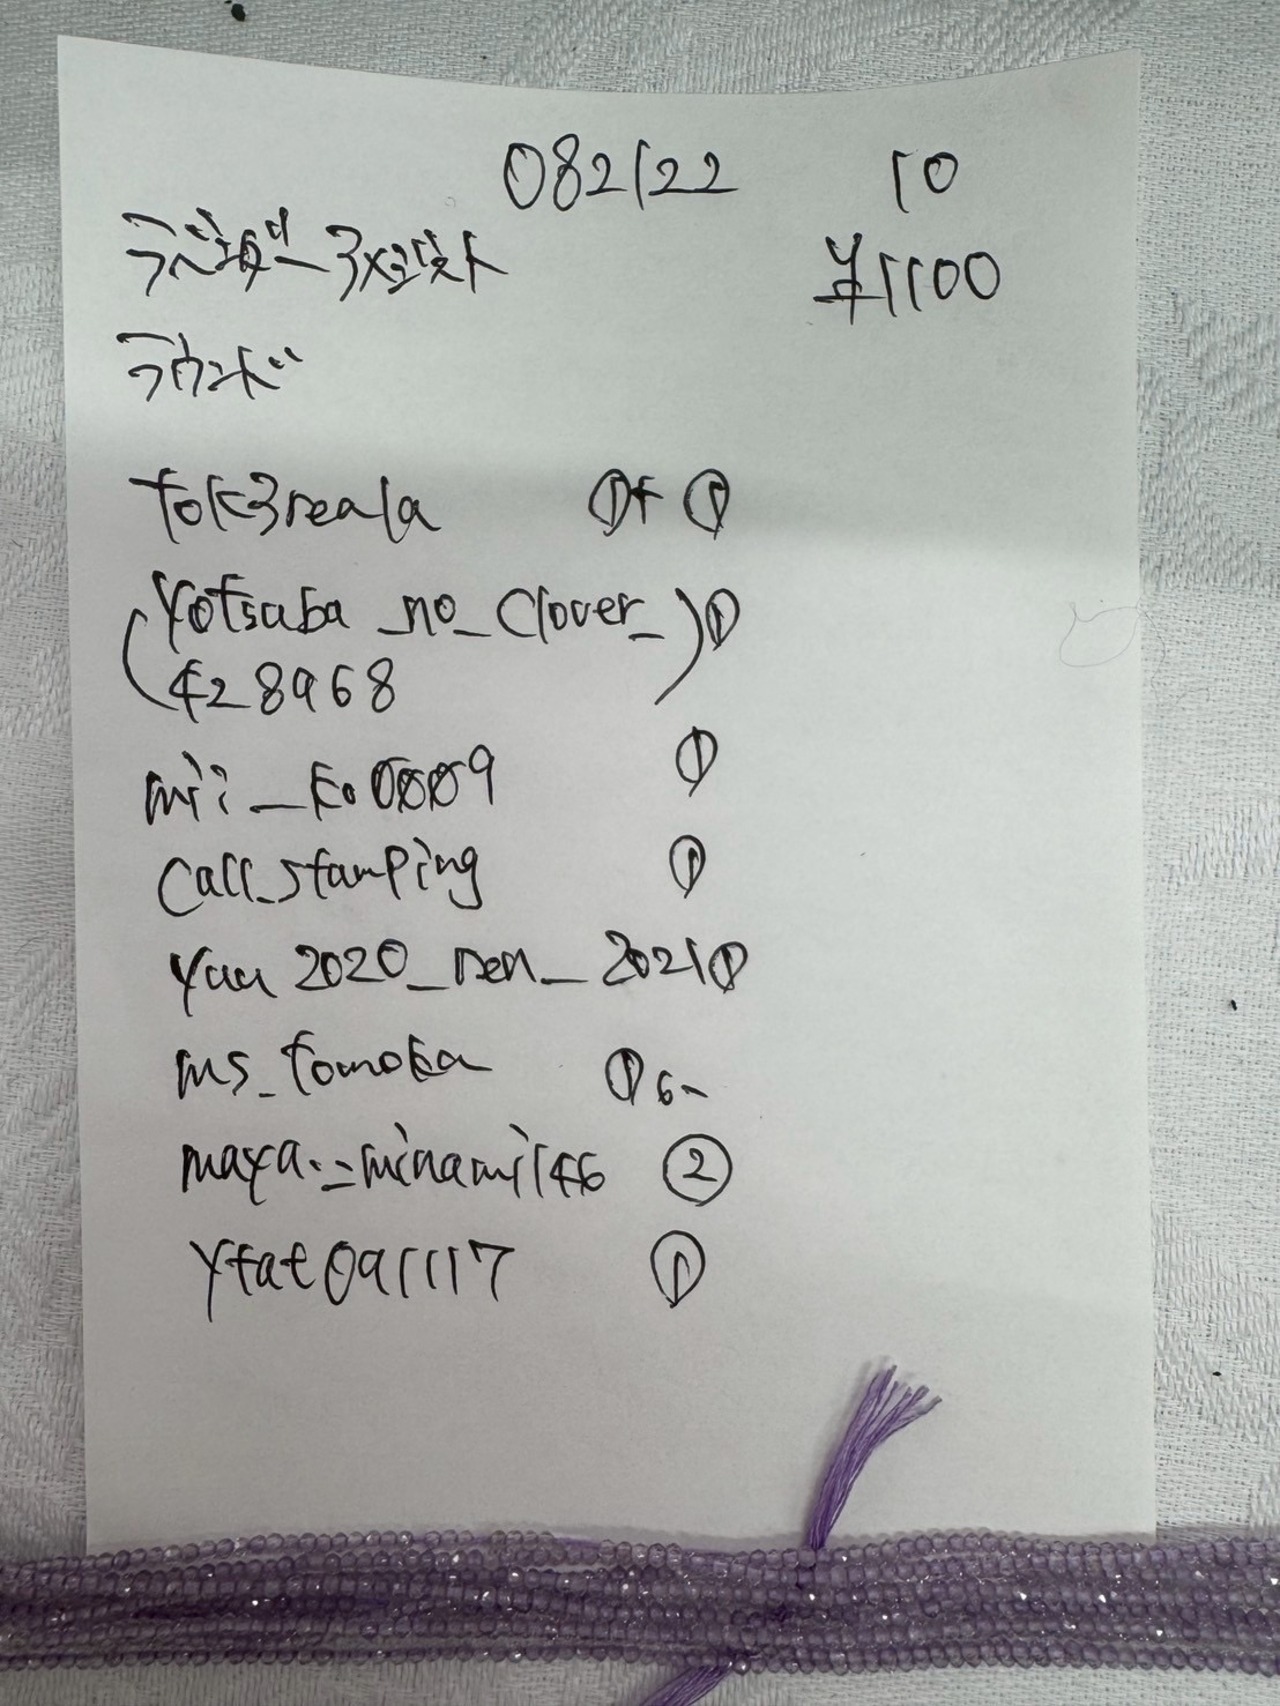 082122 10
ラベンダーアメジスト ¥1100
ラウンド
tok3reala ①+①
(yotsuba_no_clover_ ①
428968)
mii_ko0009 ①
call_stamping ①
yuu2020_nen_2021 ①
ms_tomoka ①6~
maya.=minami146 ②
ytat091117 ①